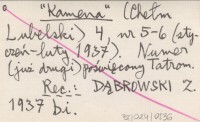 "Kamena" (Chełm
Lubelski) 4, nr 5-6 (sty-
czeń-luty 1937). Numer
(już drugi) poświęcony Tatrom.
Rec.: DĄBROWSKI Z.
1937 bi.